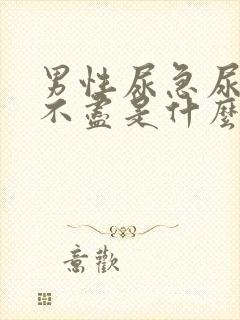 男性尿急尿
不盡是什麼
意歡